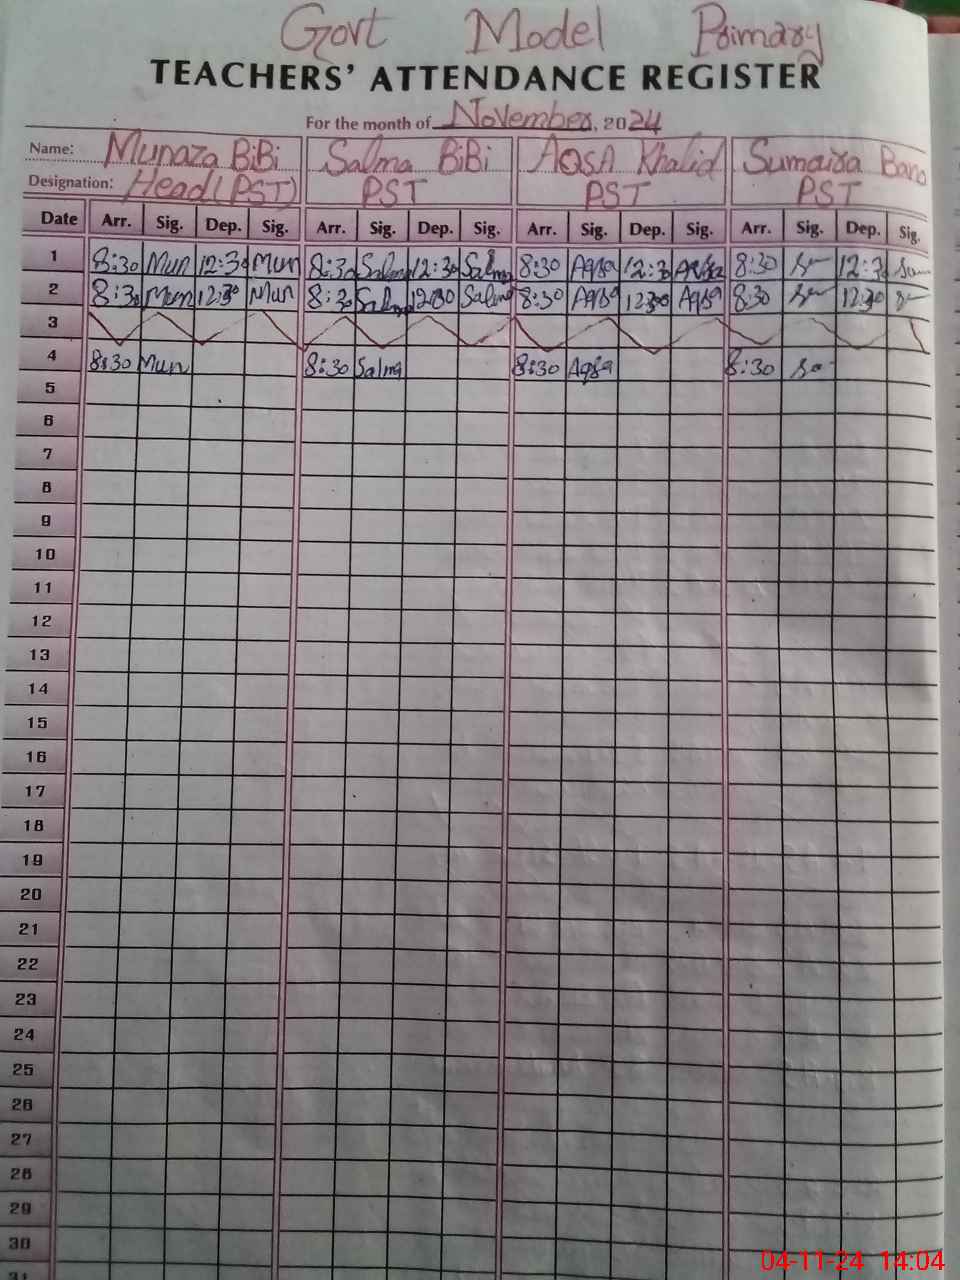 Govt Model Primary
TEACHERS' ATTENDANCE REGISTER
For the month of November, 2024
Name: Munaza BiBi Salma BiBi AQSA Khalid Sumaira Bano
Designation: Head(PST) PST PST PST
Date Arr. Sig. Dep. Sig. Arr. Sig. Dep. Sig. Arr. Sig. Dep. Sig. Arr. Sig. Dep. Sig.
1 8:30 Mun 12:30 Mun 8:30 Salma 12:30 Salma 8:30 Aqsa 12:30 Aqsa 8:30 12:30
2 8:30 Mun 12:30 Mun 8:30 Salma 12:30 Salma 8:30 Aqsa 12:30 Aqsa 8:30 12:30
3
4 8:30 Mun 8:30 Salma 8:30 Aqsa 8:30
5
6
7
8
9
10
11
12
13
14
15
16
17
18
19
20
21
22
23
24
25
26
27
28
29
30
31
04-11-24 14:04